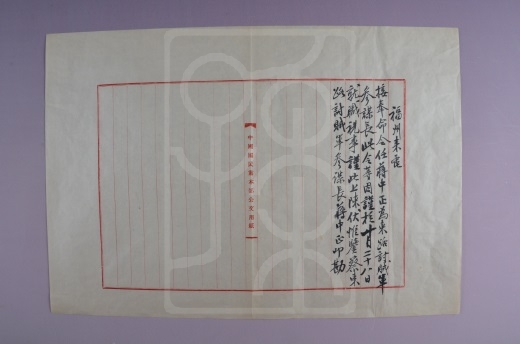 福州來電
接奉命令任蔣中正為東路討賊軍
參謀長此令等因謹於十月二十八日
就職視事謹此上陳伏惟鑒察東
路討賊軍參謀長蔣中正叩勘
中國國民黨本部公文用紙